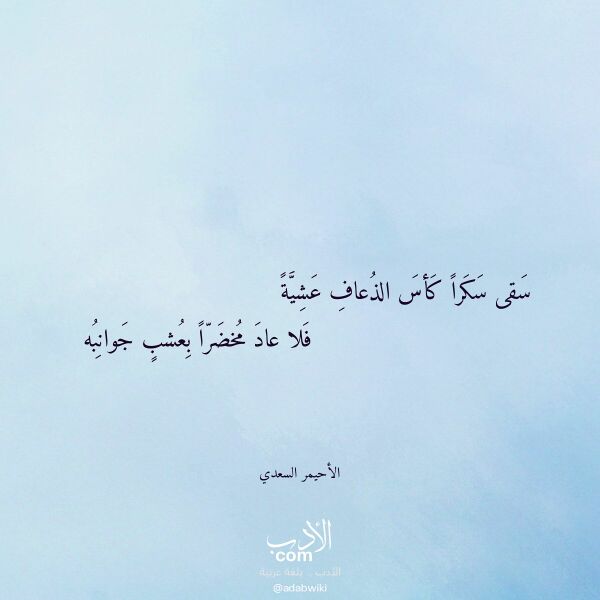 سَقى سَكَراً كَأسَ الذُعافِ عَشِيَّةً
فَلا عادَ مُخضَرّاً بِعُشبٍ جَوانِبُه
الأحيمر السعدي
الأدب
com
الأدب .. بلغة عربية
@adabwiki